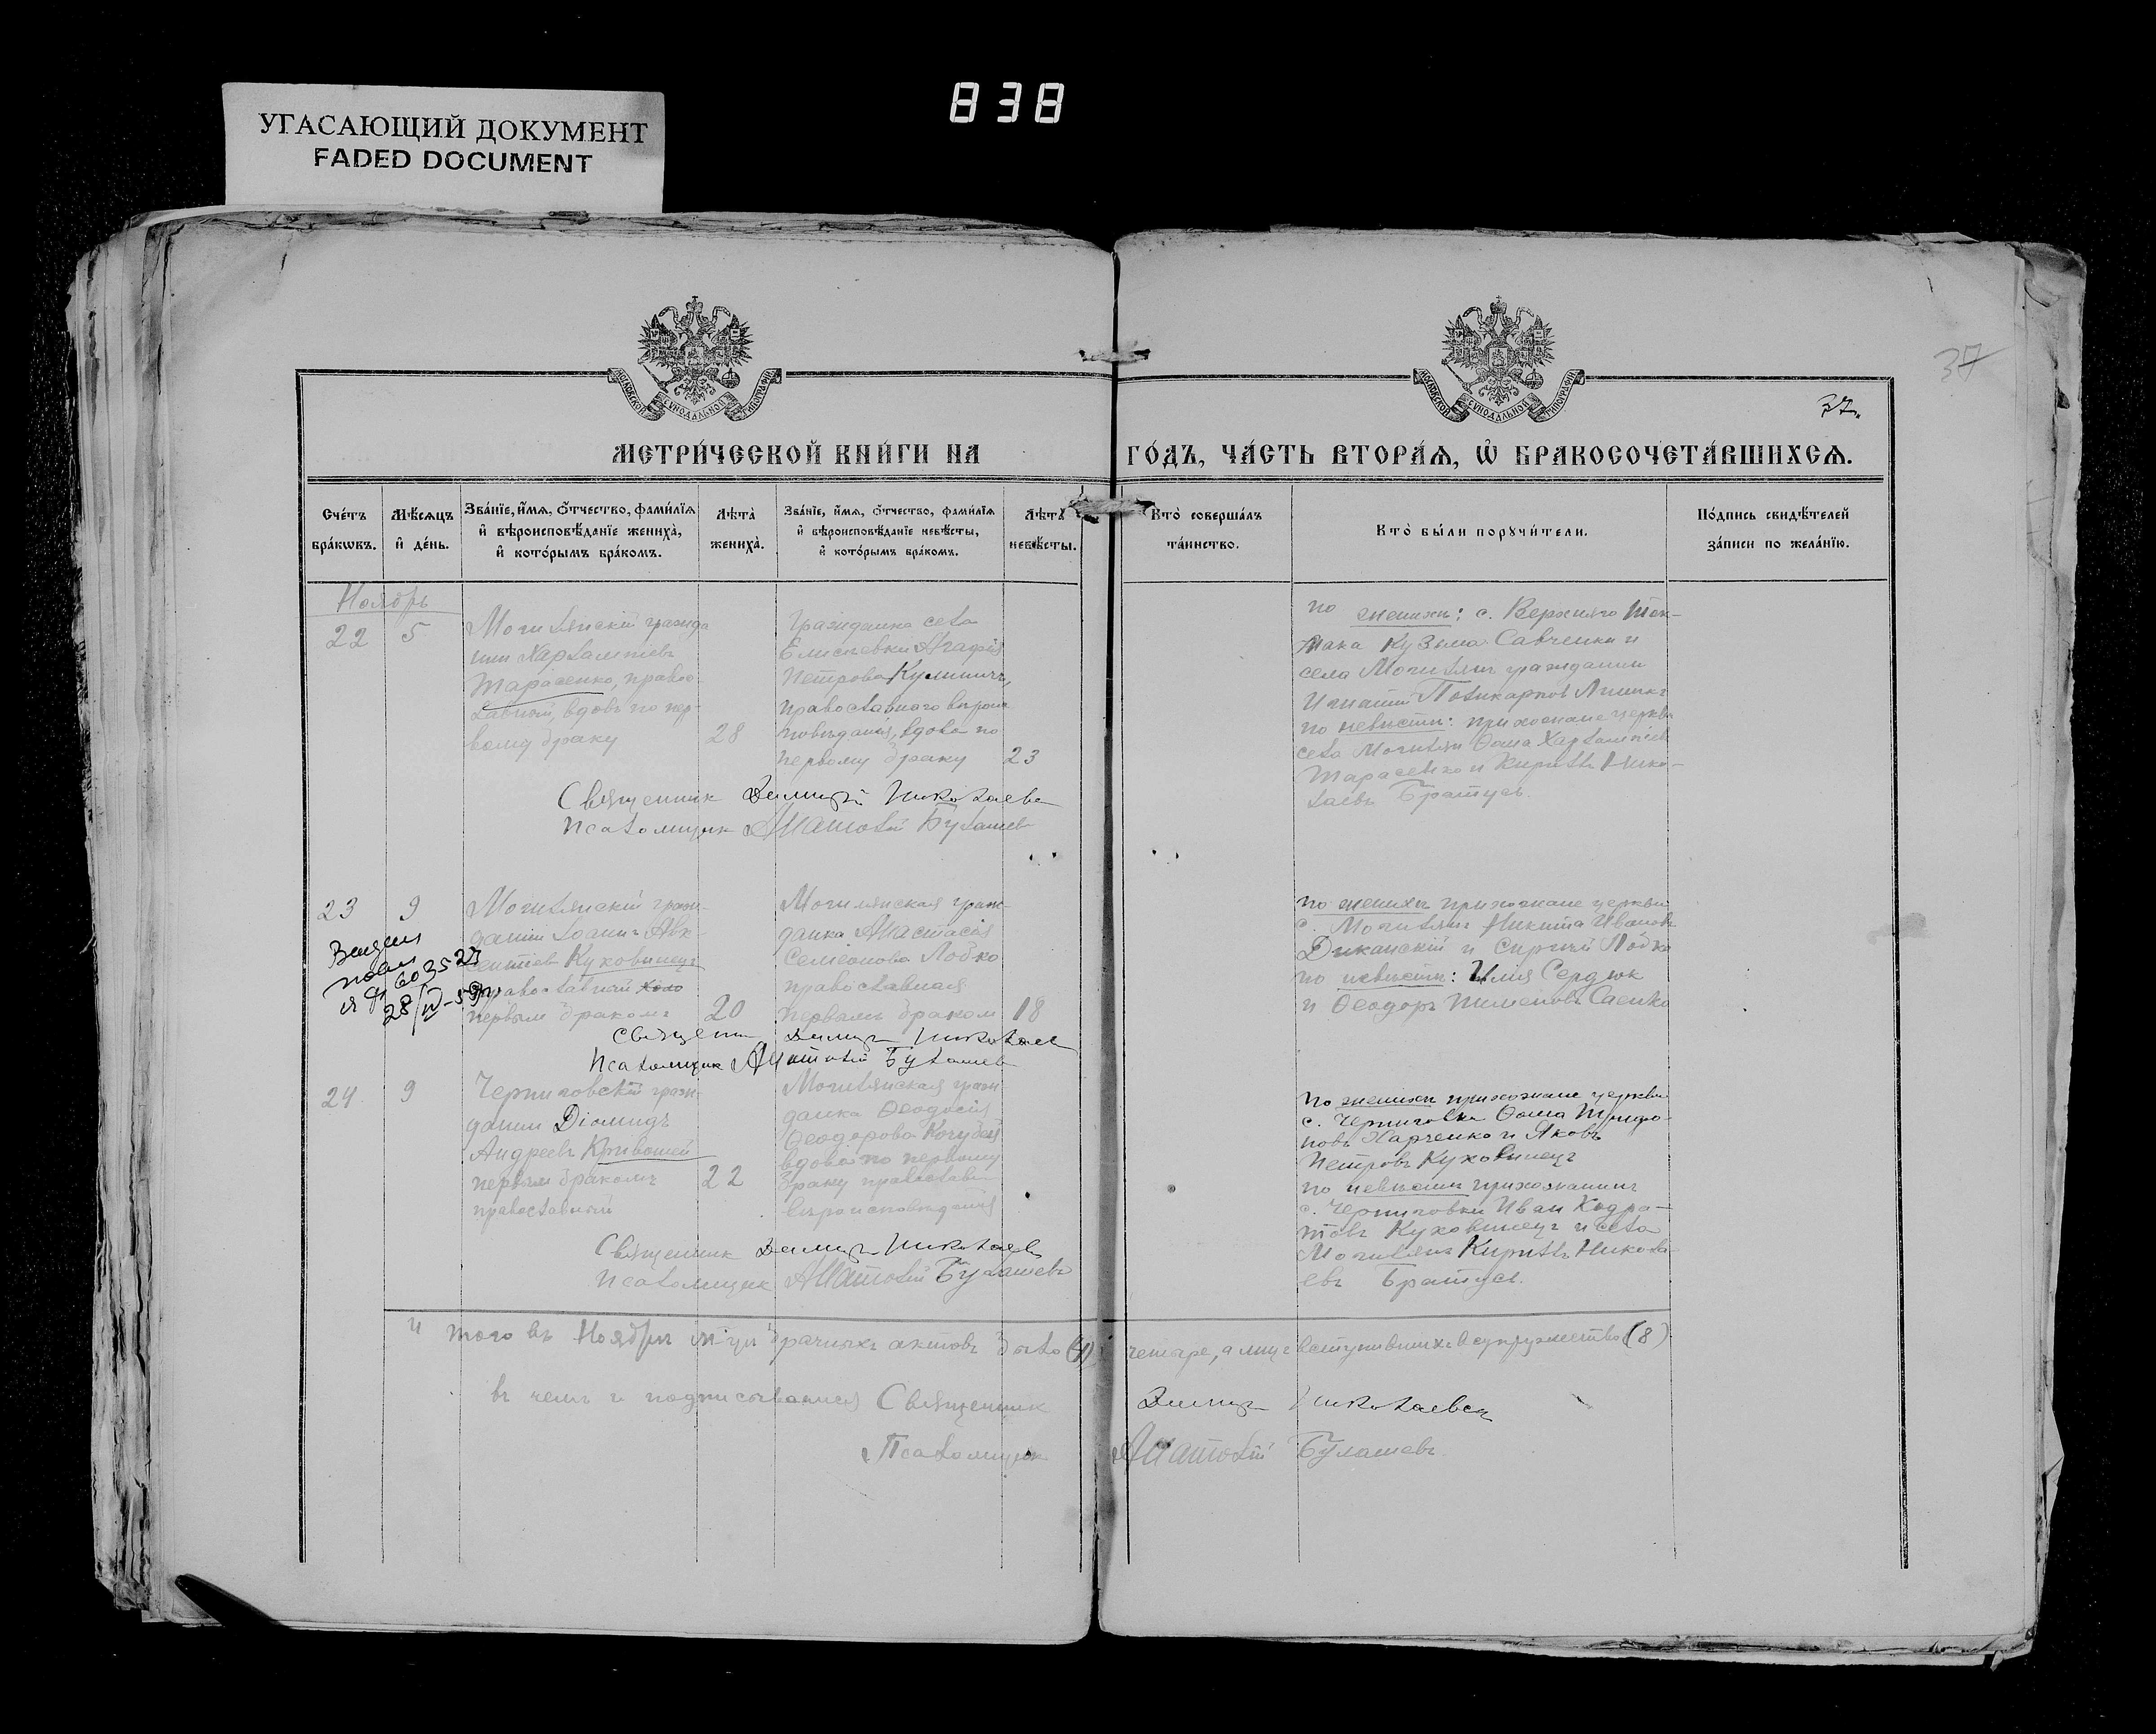 838
УГАСАЮЩИЙ ДОКУМЕНТ
FADED DOCUMENT
37
37
МЕТРИ́ЧЕСКОЙ КНИ́ГИ НА ГО́ДЪ, ЧА́СТЬ ВТОРА́Ѧ, Ѡ҆ БРАКОСОЧЕТА́ВШИХСѦ.
Сче́тъ бра́кѡвъ.
Мѣ́сѧцъ и҆ де́нь.
Зва́нїе, и҆́мѧ, ѻ҆́тчество, фами́лїѧ и҆ вѣроисповѣ́данїе жениха̀, и҆ кото́рымъ бра́комъ.
Лѣта̀ жениха̀.
Зва́нїе, и҆́мѧ, ѻ҆́тчество, фами́лїѧ и҆ вѣроисповѣ́данїе невѣ́сты, и҆ кото́рымъ бра́комъ.
Лѣта̀ невѣ́сты.
Кто̀ соверша́лъ та́инство.
Кто̀ бы́ли порꙋчи́тели.
По́дпись свидѣ́телей за́писи по жела́нїю.
Ноябрь
22 5
Могилянскій гражда
нин Харлампіевъ
Тарасенко, правос-
лавный, вдовъ по пер-
вому браку 28
Гражданка села
Елисѣевки Агафія
Петрова Кулиничъ,
православнаго вѣрои
повѣданія, вдова по
первому браку 23
по жениху: с. Верхняго Ток-
мака Кузьма Савченко и
села Могилянъ гражданин
Игнатій Поликарпов
по невѣсте: прихожане церкви
села Могилян Ѳома Харлампіев
Тарасенко и Кириллъ Нико-
лаевъ Братусь.
Священник Димитрій Николаев
Псаломщик Анатолій Булашев
23 9
Могилянскій граж-
данин Іоаннъ Авк-
сентіев Куховинецъ
православный
первым бракомъ 20
Могилянская граж-
данка Анастасія
Семіонова Лобко
православная
первымъ браком 18
по жениху прихожане церкви
с. Могилянъ Никита Ивановъ
Диканскій и Сиргій Лобко
по невѣсте: Илия Сердюк
и Ѳеодоръ Пименовъ Саенко
603527
28/IV-59
Священн Димитр Николаев
Псаломщик Анатолій Булашев
24 9
Черниговскій граж-
данин Діомидъ
Андреевъ Кривошей
первым бракомъ 22
православный
Могилянская граж
данка Ѳеодосія
Ѳеодорова Кочубей
вдова по первому
браку православн
вѣроисповѣданія
по жениху прихожане церкви
с. Черниговки Ѳома Трифо-
новъ Харченко и Яковъ
Петровъ Куховинецъ
по невѣсте прихожанинъ
с. Черниговки Иван Кодра-
товъ Куховинецъ и села
Могилянъ Кириллъ Никола
евъ Братусь.
Священник Димитр Николаев
Псаломщик Анатолій Булашевъ
И того въ Ноябрѣ м-цѣ брачныхъ актовъ было (4) четаре, а лицъ вступившихъ в супружество (8)
въ чемъ и подписываемся Священник Димитр Николаевъ
Псаломщик Анатолій Булашевъ